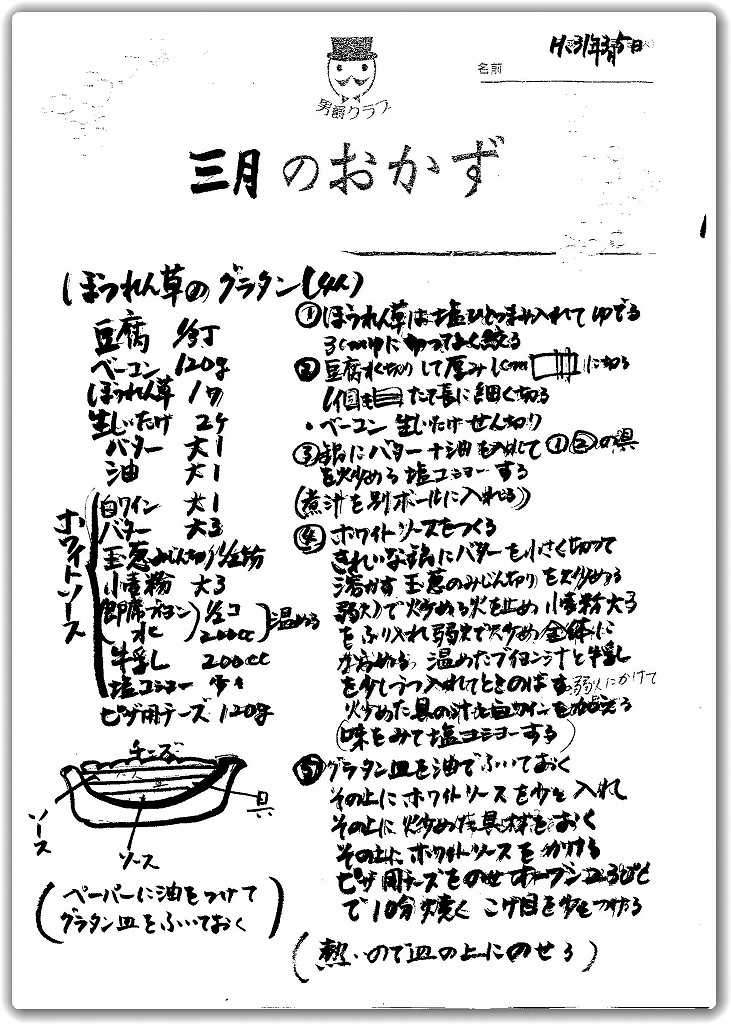 H.31年3月5日
名前
男爵クラブ
三月のおかず
ほうれん草のグラタン(4人)
豆腐 1/2丁
ベーコン 120g
ほうれん草 1ワ
生しいたけ 2ケ
バター 大1
油 大1
ホワイトソース
白ワイン 大1
バター 大3
玉葱みじん切り 1/2ケ分
小麦粉 大3
即席ブイヨン 1/2コ
水 200cc
温める
牛乳 200cc
塩コショー 少々
ピザ用チーズ 120g
チーズ
ソース
具
ソース
(ペーパーに油をつけて
グラタン皿をふいておく)
① ほうれん草は塩ひとつまみ入れてゆでる
3cm巾に切ってよく絞る
② 豆腐水切りして厚み1cm に切る
1個を たて長に細く切る
・ベーコン 生しいたけせん切り
③ 鍋にバター+油を入れて①②の具
を炒める 塩コショーする
(煮汁を別ボールに入れる)
④ ホワイトソースをつくる
きれいな鍋にバターを小さく切って
溶かす 玉葱のみじん切りを炒める
弱火で炒める火を止め 小麦粉大3
をふり入れ弱火で炒め全体に
温めたブイヨン汁と牛乳
を少しづつ入れてときのばす 弱火にかけて
炒めた具の汁と白ワインを加える
(味をみて塩コショーする)
⑤ グラタン皿を油でふいておく
その上にホワイトソースを少々入れ
その上に炒めた具材をおく
その上にホワイトソースをかける
ピザ用チーズをのせオーブン230℃
で10分焼く こげ目を少々つける
(熱いので皿の上にのせる)